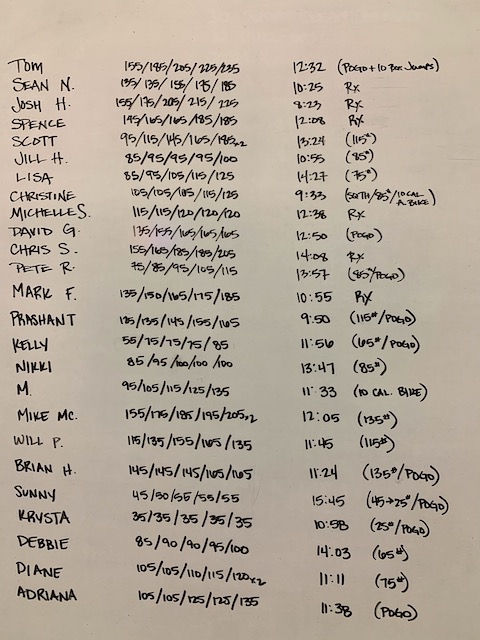 TOM 155/185/205/225/235 12:32 (POGO + 10 BOX JUMPS)
SEAN N. 135/135/155/175/185 10:25 RX
JOSH H. 155/175/205/215/225 8:23 RX
SPENCE 145/165/165/185/185 12:08 RX
SCOTT 95/115/145/165/185x2 13:24 (115#)
JILL H. 85/95/95/95/100 10:55 (85#)
LISA 85/95/105/115/125 14:27 (75#)
CHRISTINE 105/105/105/115/125 9:33 (50TH/85#/10 CAL A. BIKE)
MICHELLE S. 115/115/120/120/120 12:38 RX
DAVID G. 135/155/165/165/165 12:50 (POGO)
CHRIS S. 155/165/185/185/205 14:08 RX
PETE R. 75/85/95/105/115 13:57 (85#/POGO)
MARK F. 135/150/165/175/185 10:55 RX
PRASHANT 125/135/145/155/165 9:50 (115#/POGO)
KELLY 55/75/75/75/85 11:56 (65#/POGO)
NIKKI 85/95/100/100/100 13:47 (85#)
M. 95/105/115/125/135 11:33 (10 CAL. BIKE)
MIKE MC. 155/175/185/195/205x2 12:05 (135#)
WILL P. 115/135/155/165/135 11:45 (115#)
BRIAN H. 145/145/145/165/165 11:24 (135#/POGO)
SUNNY 45/50/55/55/55 15:45 (45→25#/POGO)
KRYSTA 35/35/35/35/35 10:58 (25#/POGO)
DEBBIE 85/90/90/95/100 14:03 (65#)
DIANE 105/105/110/115/120x2 11:11 (75#)
ADRIANA 105/105/125/125/135 11:38 (POGO)